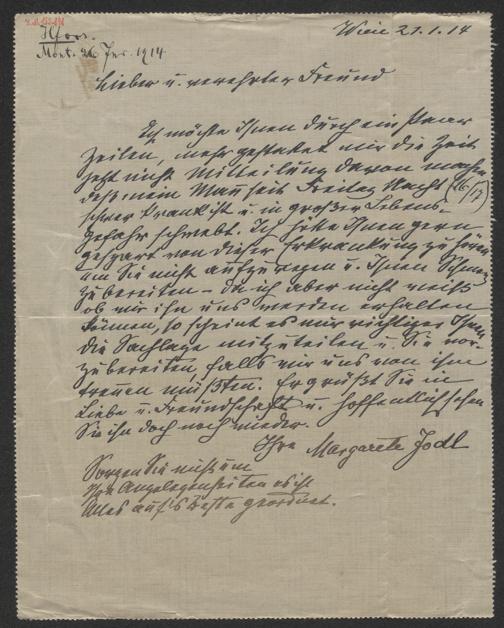 Hfors.
Mont. 26 Jan. 1914.
Wien 21.1.14
Lieber u. verehrter Freund
Ich möchte Ihnen durch ein paar
Zeilen, mehr gestattet mir die Zeit
jetzt nicht Mitteilung davon machen
daß mein Mann seit Freitag Nacht (16/17)
schwer krank ist u. in großer Lebens-
gefahr schwebt. Ich hätte Ihnen gern
gespart von dieser Erkrankung zu hören
um Sie nicht aufzuregen u. Ihnen Schmerz
zu bereiten – da ich aber nicht weiß
ob wir ihn uns werden erhalten
können, so scheint es mir richtiger Ihnen
die Sachlage mitzuteilen u. Sie vor-
zubereiten, falls wir uns von ihm
trennen müßten. Er grüßt Sie in
Liebe u. Freundschaft u. hoffentlich sehen
Sie ihn doch noch wieder.
Ihre Margarete Jodl
Sorgen Sie nicht um
Ihre Angelegenheiten es ist
Alles auf's Beste geordnet.